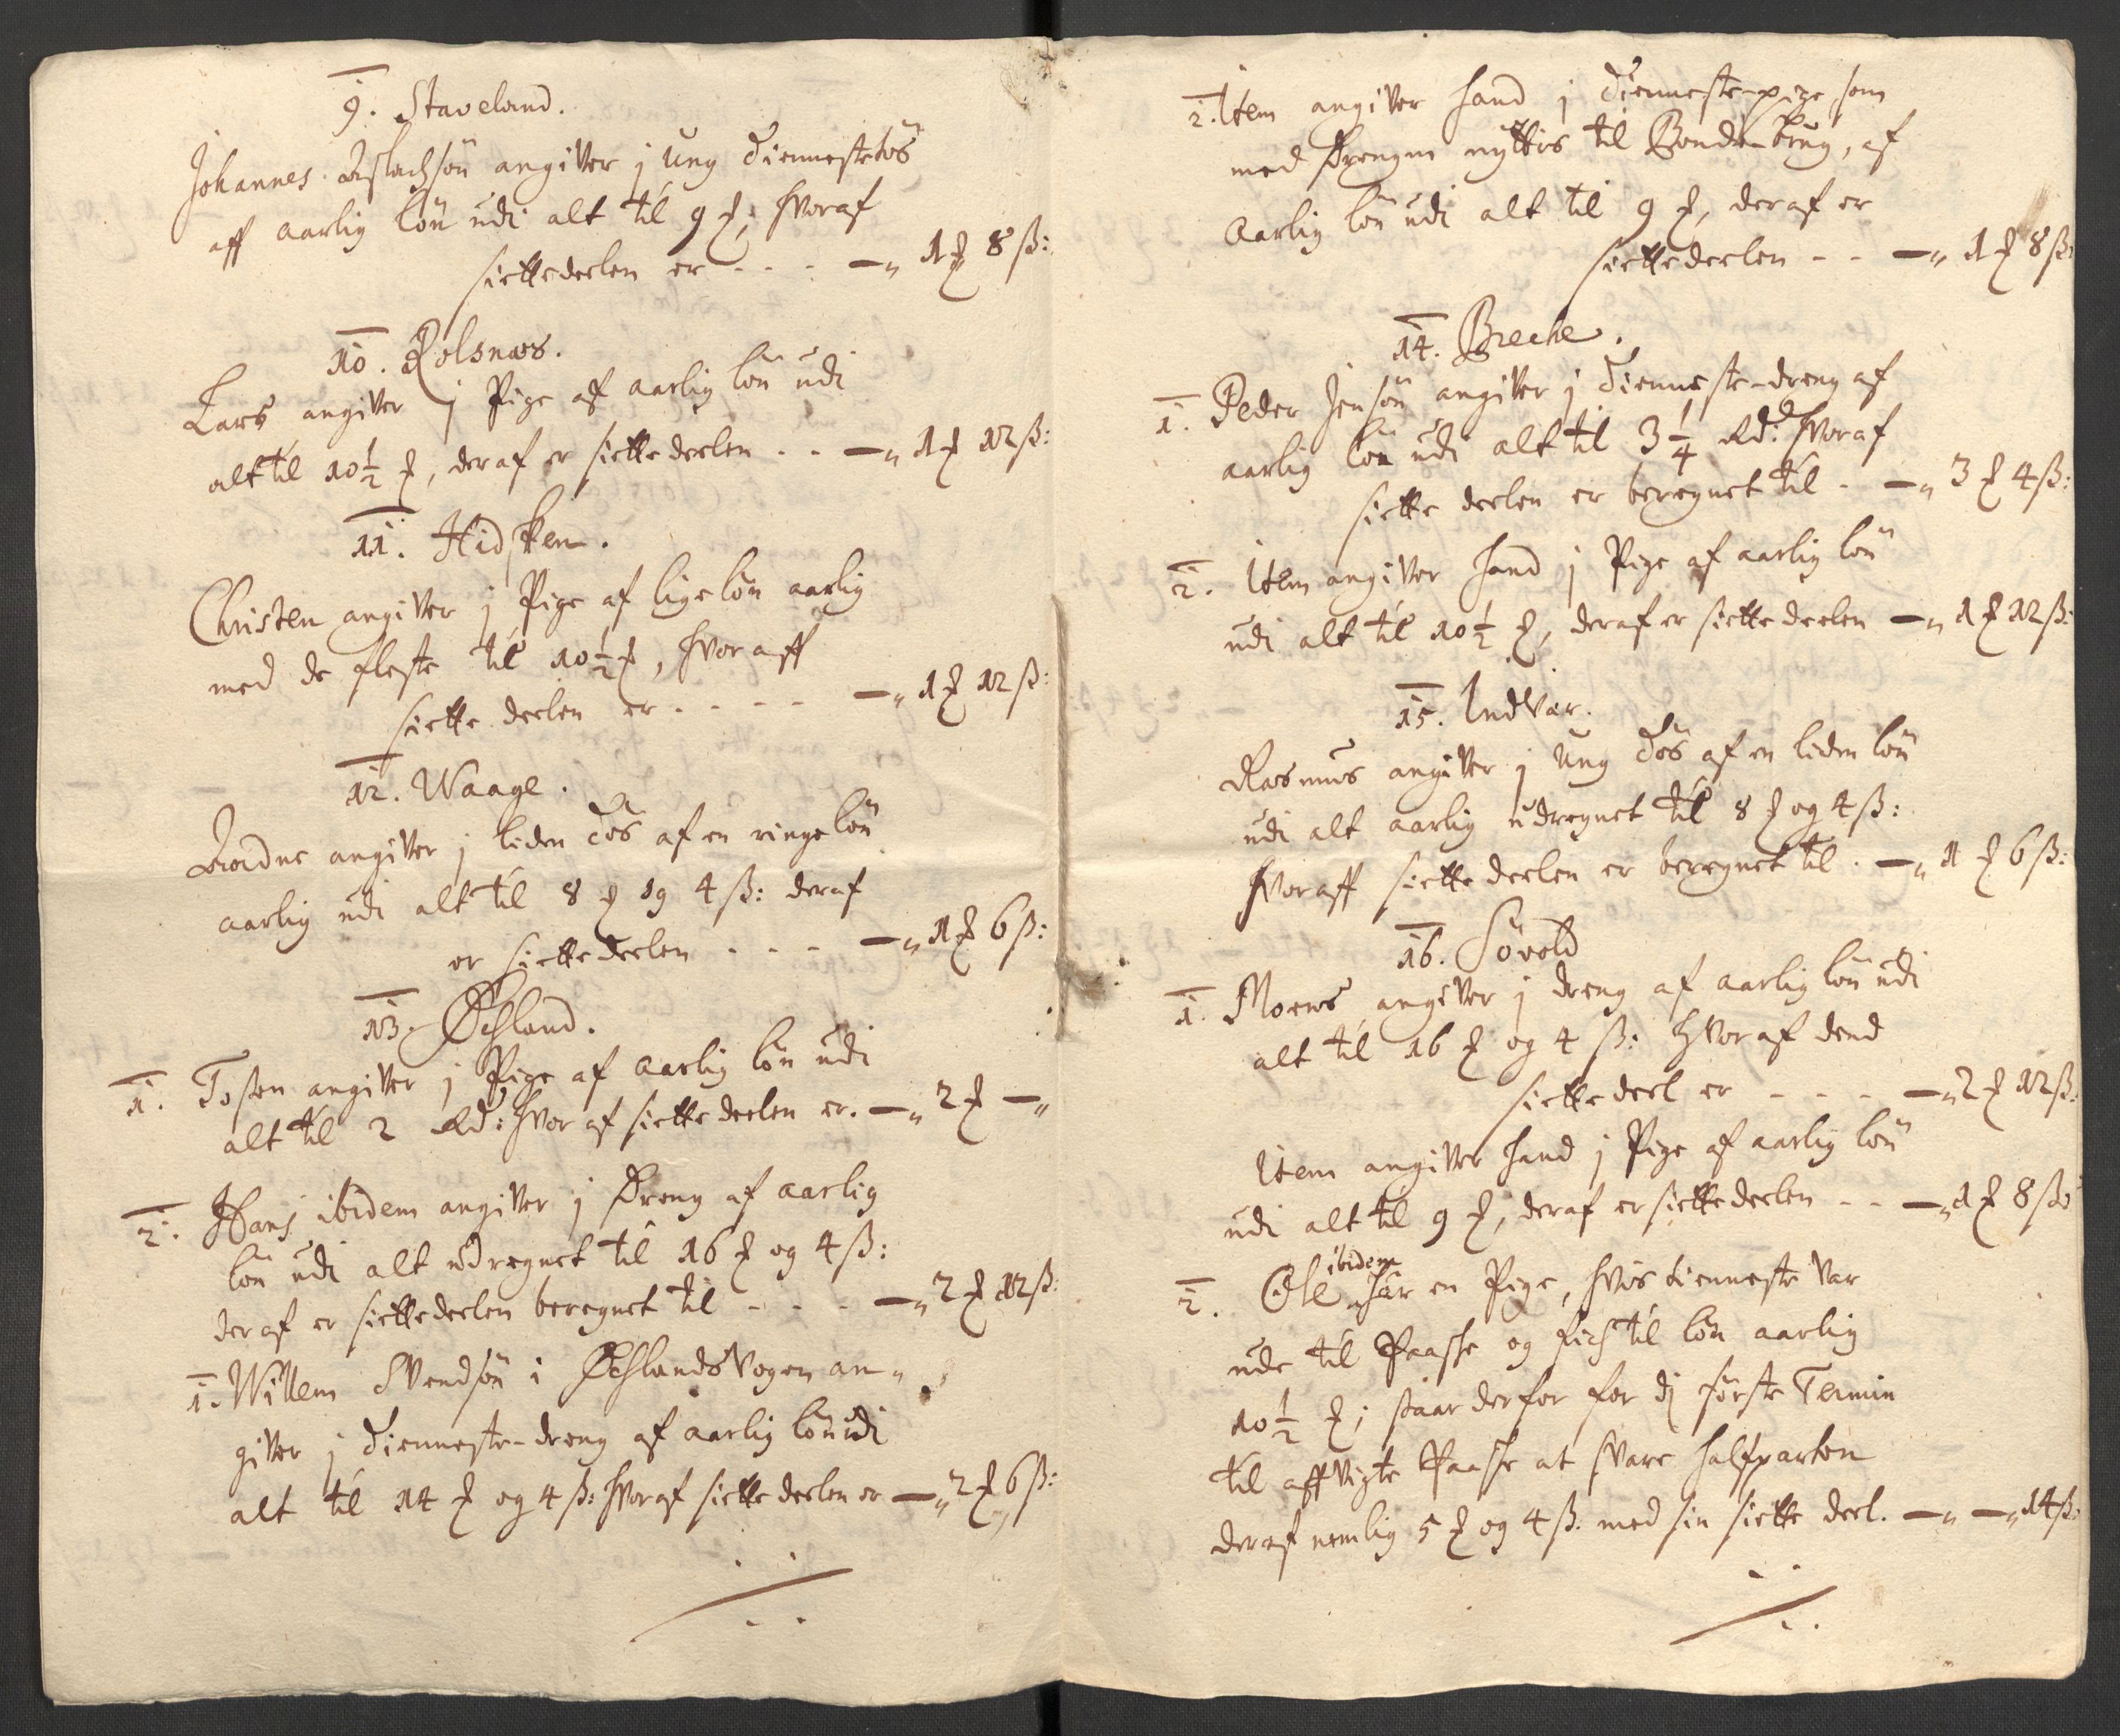 9. Staveland.
Johannes Aslachsøn angiver j ung dienneste tøs
aff aarlig løn udi alt til 9 ℳ, hvoraf
siette deelen er - - - —„ 1 ℳ 8 ß:
10. Rolsnæs.
Lars angiver j Pige af aarlig løn udi
alt til 10½ ℳ, deraf er siette deelen - - —„ 1 ℳ 12 ß:
11. Hidsken.
Christen angiver j Pige af lige løn aarlig
med de fleste til 10½ ℳ, hvoraff
siette deelen er - - - - —„ 1 ℳ 12 ß:
12. Waage.
angiver j liden tøs af en ringe løn
aarlig udi alt til 8 ℳ og 4 ß: deraf
er siette deelen - - - —„ 1 ℳ 6 ß:
13. Øchland.
1. Tosten angiver j Pige af aarlig løn udi
alt til 2 Rd: hvoraf siette deelen er. —„ 2 ℳ —„
2. Hans ibidem angiver j Dreng af aarlig
løn udi alt udregnet til 16 ℳ og 4 ß:
deraf er siette deelen beregnet til - - - —„ 2 ℳ 12 ß:
1. Willem Svendsøn i Øchlands Vogen an-
giver j dienneste-dreng af aarlig løn udi
alt til 14 ℳ og 4 ß: hvoraf siette deelen er —„ 2 ℳ 6 ß:
2. Item angiver hand j dienneste-pige, som
med Drengen nyttis til Bonde-brug, af
aarlig løn udi alt til 9 ℳ, deraf er
siette deelen - - —„ 1 ℳ 8 ß:
14. Breche.
1. Peder Jensøn angiver j dienneste-dreng af
aarlig løn udi alt til 3¼ Rd: hvoraf
siette deelen er beregnet til - —„ 3 ℳ 4 ß:
2. Item angiver hand j Pige af aarlig løn
udi alt til 10½ ℳ, deraf er siette deelen —„ 1 ℳ 12 ß:
15. Indvær.
Rasmus angiver j ung tøs af en liden løn
udi alt aarlig udregnet til 8 ℳ og 4 ß:
hvoraff siette deelen er beregnet til. —„ 1 ℳ 6 ß:
16. Søvold
1. Moens angiver j dreng af aarlig løn udi
alt til 16 ℳ og 4 ß: hvoraf dend
siette deel er - - - —„ 2 ℳ 12 ß:
Item angiver hand j Pige af aarlig løn
udi alt til 9 ℳ, deraf er siette deelen - - —„ 1 ℳ 8 ß:
2. Ole ibidem har en Pige, hvis tienneste var
ude til Paasche og fich til løn aarlig
10½ ℳ; staar derfor for dj første Termin
til affvigte Paasche at svare halfparten
deraf nemlig 5 ℳ og 4 ß. med sin siette deel. —„ —„ 14 ß: